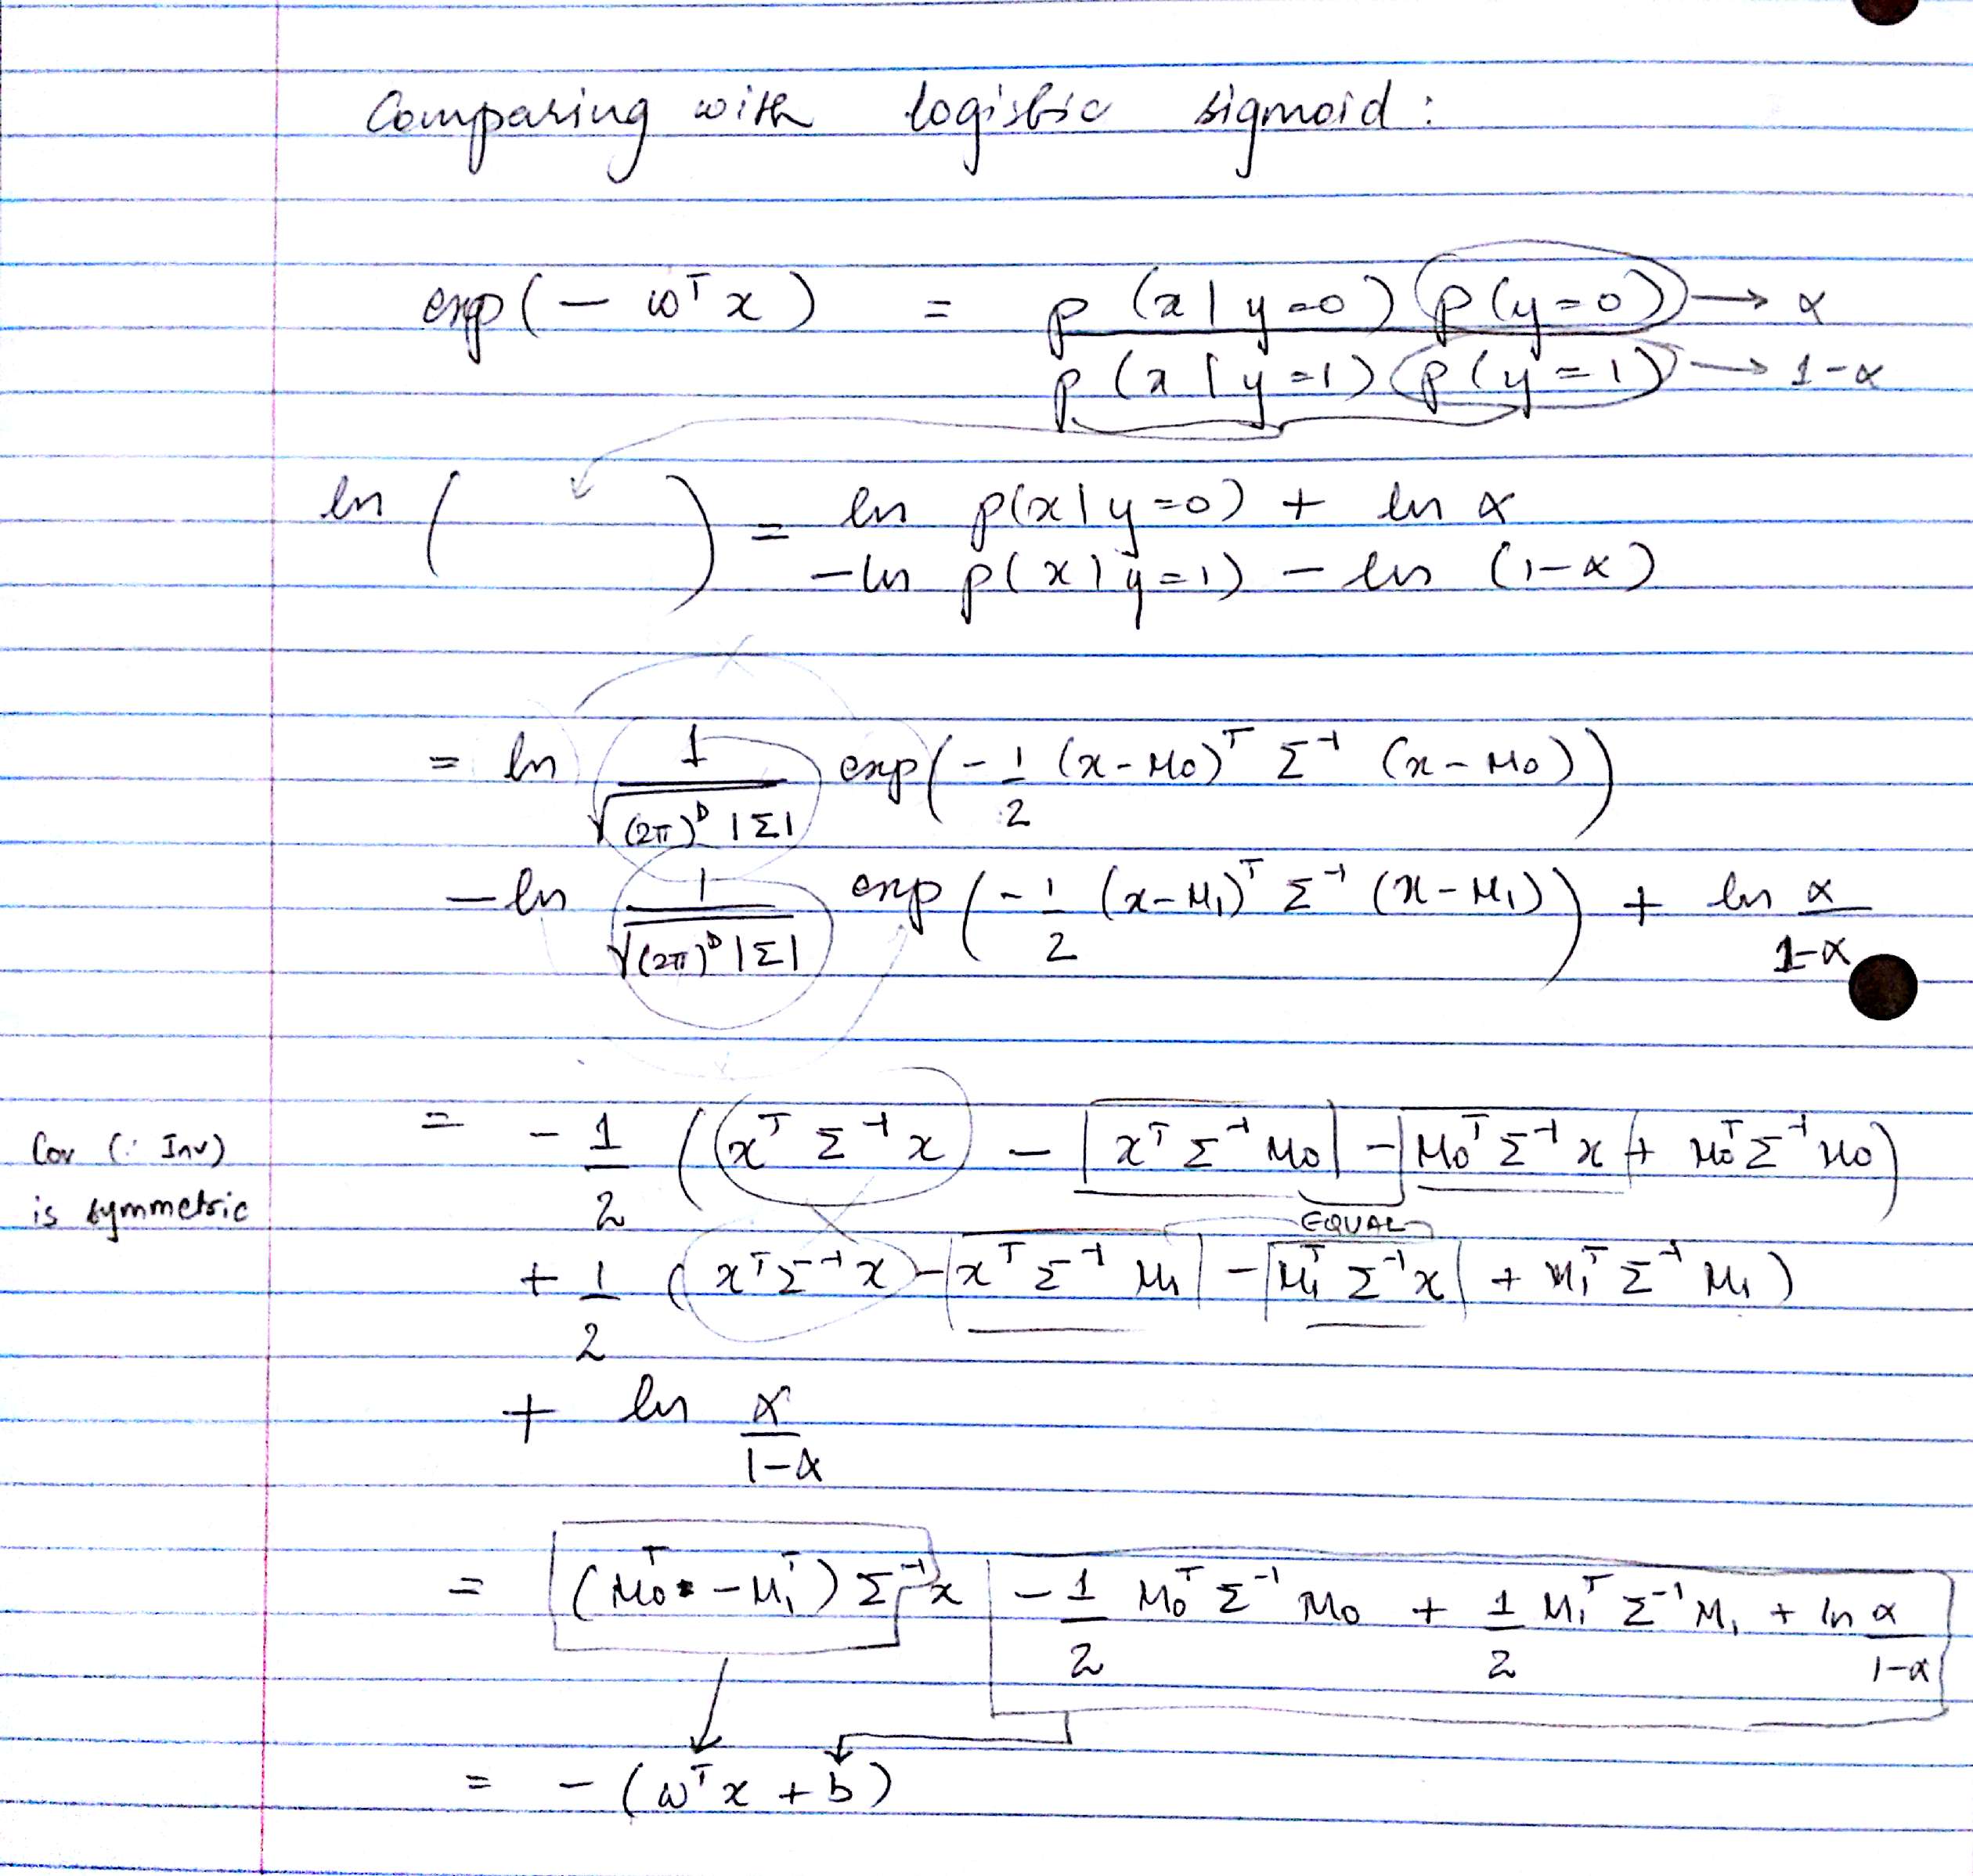 Comparing with logistic sigmoid :
exp(− ωᵀx) = p(x|y=0) p(y=0) → α
p(x|y=1) p(y=1) → 1-α
ln ( ) = ln p(x|y=0) + ln α
−ln p(x|y=1) − ln (1-α)
= ln 1/√((2π)ᴰ |Σ|) exp(-1/2 (x-μ₀)ᵀ Σ⁻¹ (x-μ₀))
−ln 1/√((2π)ᴰ |Σ|) exp(-1/2 (x-μ₁)ᵀ Σ⁻¹ (x-μ₁)) + ln α/1-α
= -1/2 (xᵀ Σ⁻¹ x − xᵀ Σ⁻¹ μ₀ − μ₀ᵀ Σ⁻¹ x + μ₀ᵀ Σ⁻¹ μ₀)
Cov (∵ Inv)
is symmetric
EQUAL
+ 1/2 (xᵀ Σ⁻¹ x − xᵀ Σ⁻¹ μ₁ − μ₁ᵀ Σ⁻¹ x + μ₁ᵀ Σ⁻¹ μ₁)
+ ln α/1-α
= (μ₀ᵀ − μ₁ᵀ) Σ⁻¹ x − 1/2 μ₀ᵀ Σ⁻¹ μ₀ + 1/2 μ₁ᵀ Σ⁻¹ μ₁ + ln α/1-α
= − (ωᵀx + b)